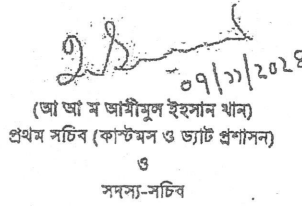 ০৭/১১/২০২৪
(আ আ ম আমীমুল ইহসান খান)
প্রথম সচিব (কাস্টমস ও ভ্যাট প্রশাসন)
ও
সদস্য-সচিব